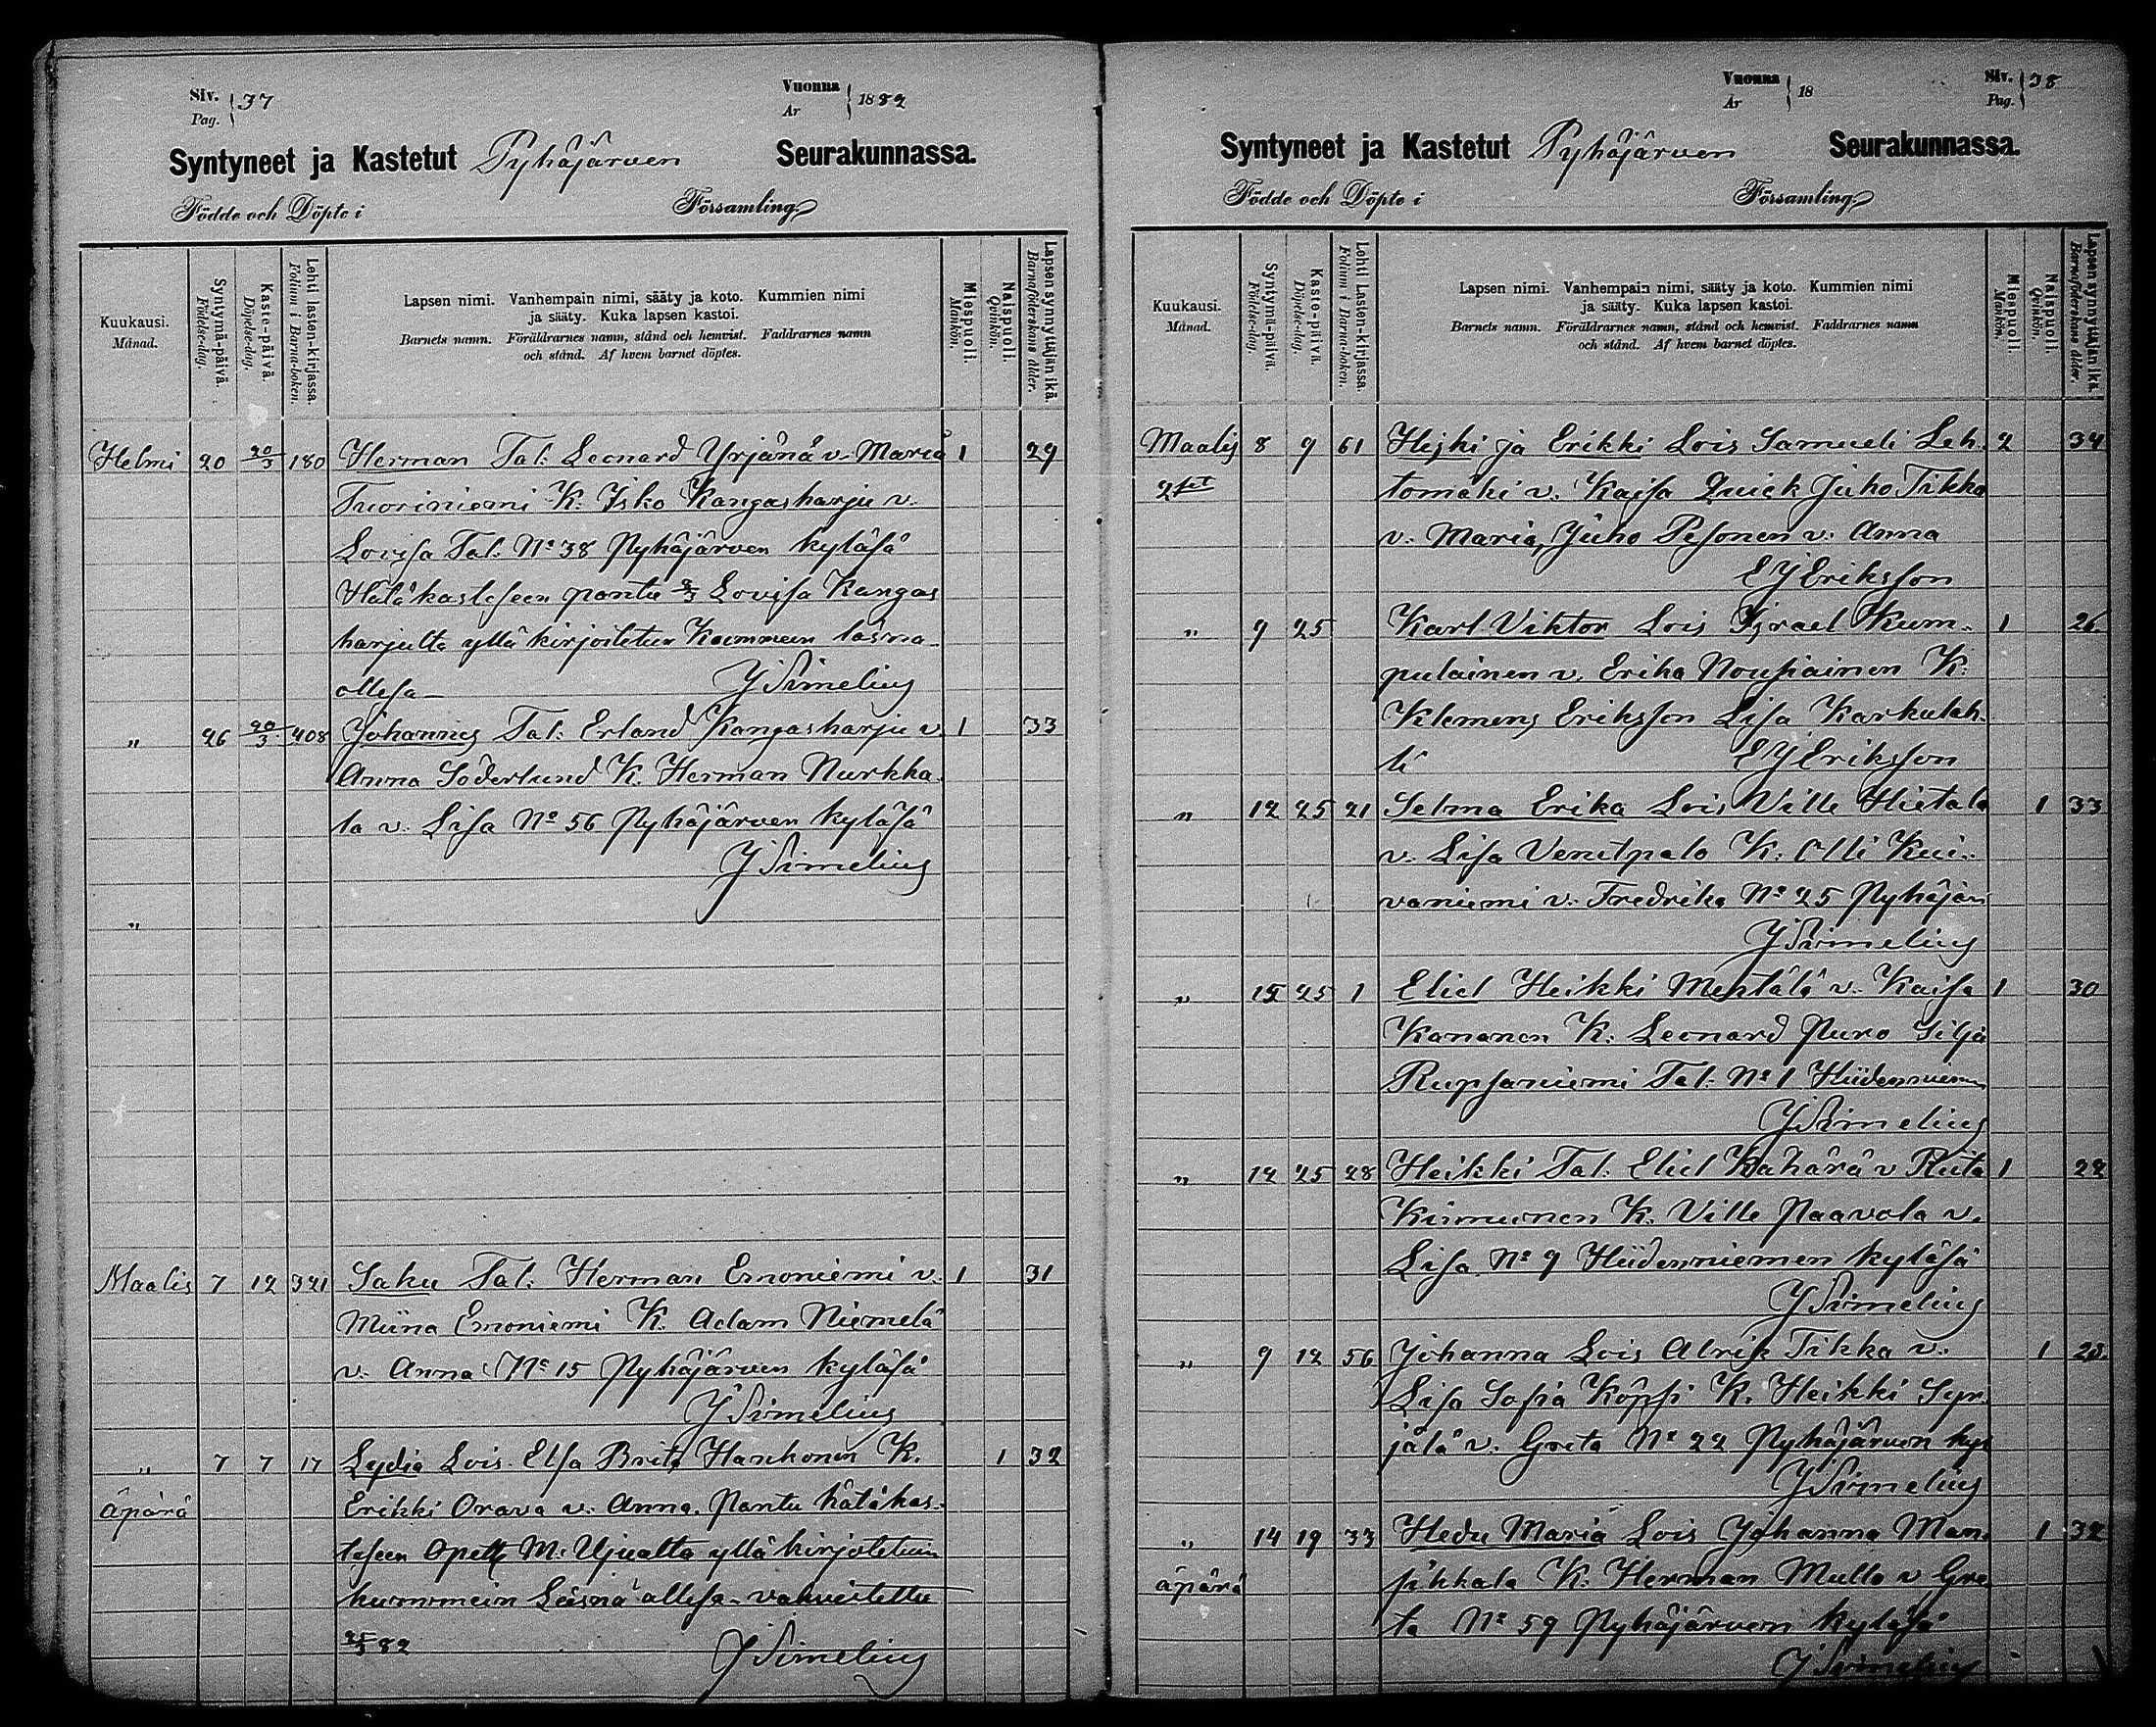 Siv. 37
Pag.
Vuonna 1882
Ar
Syntyneet ja Kastetut Pyhäjärven Seurakunnassa.
Födde och Döpte i Församling.
Kuukausi.
Månad.
Syntymä-päivä.
Födelse-dag.
Kaste-päivä.
Döpelse-dag.
Lehti lasten-kirjassa.
Folium i Barna-boken.
Lapsen nimi. Vanhempain nimi, sääty ja koto. Kummien nimi
ja sääty. Kuka lapsen kastoi.
Barnets namn. Föräldrarnes namn, stånd och hemvist. Faddrarnes namn
och stånd. Af hvem barnet döptes.
Miespuoli.
Mankön.
Naispuoli.
Qvinkön.
Lapsen synnyttäjän ikä.
Barnaföderskans ålder.
Helmi 20 20/3 180 Herman Tal: Leonard Yrjänä v. Maria 1 29
Tuoriniemi K: Isko Kangasharju v.
Lovisa Tal: No 38 Pyhäjärven kyläsä
Hätäkasteseen pantu Lovisa Kangas
harjulta yllä kirjoitetun Kummeen läsnä
ollesa JSimelius
" 26 20/3 408 Johannes Tal: Erland Kangasharju v. 1 33
Anna Söderlund K. Herman Nurkka-
la v. Lisa No 56 Pyhäjärven kyläsä
JSimelius
"
Maalis 7 12 321 Saku Tal: Herman Emoniemi v. 1 31
Miina Emoniemi K. Adam Niemelä
v. Anna No 15 Pyhäjärven kyläsä
JSimelius
" 7 7 17 Lydia Lois. Elsa Brita Hankonen K. 1 32
äpärä Erikki Orava v. Anna. Pantu hätäkas-
teseen M: yllä kirjotetuin
kummein Läsnä ollesa vahvistettu
25/3 82 JSimelius
Vuonna 18
Ar
Siv. 38
Pag.
Syntyneet ja Kastetut Pyhäjärven Seurakunnassa.
Födde och Döpte i Församling.
Kuukausi.
Månad.
Syntymä-päivä.
Födelse-dag.
Kaste-päivä.
Döpelse-dag.
Lehti Lasten-kirjassa.
Folium i Barna-boken.
Lapsen nimi. Vanhempain nimi, sääty ja koto. Kummien nimi
ja sääty. Kuka lapsen kastoi.
Barnets namn. Föräldrarnes namn, stånd och hemvist. Faddrarnes namn
och stånd. Af hvem barnet döptes.
Miespuoli.
Mankön.
Naispuoli.
Qvinkön.
Lapsen synnyttäjän ikä.
Barnaföderskans ålder.
Maalis 8 9 61 Heiki ja Erikki Lois Samueli Leh- 2 34
2set tomäki v. Kaisa Quick Juho Tikka
v. Maria, Juho Pesonen v. Anna
EJEriksson
" 9 25 Karl Viktor Lois Israel Kum- 1 26
pulainen v. Erika Nousiainen K:
Klemens Eriksson Lisa Karkulah-
ti EJEriksson
" 12 25 21 Selma Erika Lois Ville Hietala 1 33
v. Lisa Venetpalo K: Olli Kui-
vaniemi v. Fredrika No 25 Pyhäjär
JSimelius
" 15 25 1 Eliel Heikki Mehtälä v. Kaisa 1 30
Kananen K: Leonard Puro Silja
Rupsaniemi Tal: No 1 Hiidenniemi
JSimelius
" 12 25 28 Heikki Tal: Eliel Kähärä v Riita 1 22
Kinnunen K. Ville Paavola v.
Lisa No 9 Hiidenniemen kyläsä
JSimelius
" 9 12 56 Johanna Lois Alrik Tikka v. 1 28
Lisa Sofia Köpsi K. Heikki Syr-
jälä v. Greta No 22 Pyhäjärven kyl
JSimelius
" 14 19 33 Hedu Maria Lois Johanna Man- 1 32
äpärä sikkala K: Herman Mulla v Gre
ta No 59 Pyhäjärven kyläsä
JSimelius